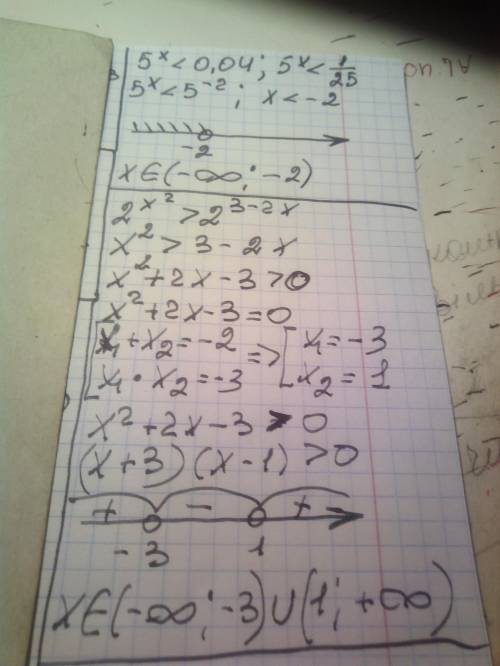 5^x < 0,04; 5^x < 1/25
5^x < 5^-2; x < -2
-2
x∈(-∞; -2)
2^x² > 2^3-2x
x² > 3 - 2x
x² + 2x - 3 > 0
x² + 2x - 3 = 0
[x₁ + x₂ = -2 => [x₁ = -3
x₁ · x₂ = -3 x₂ = 1
x² + 2x - 3 > 0
(x+3)(x-1) > 0
+ - +
-3 1
x∈(-∞; -3)∪(1; +∞)